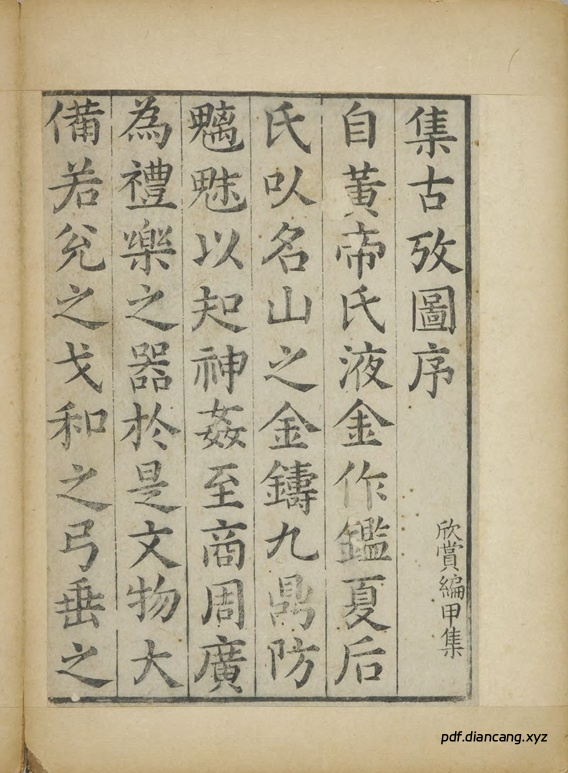 集古攷圖序
欣賞編甲集
自黃帝氏液金作鑑夏后
氏㕥名山之金鑄九鼎防
魑魅以知神姦至商周廣
為禮樂之器於是文物大
備若兊之戈和之弓垂之
pdf.diancang.xyz